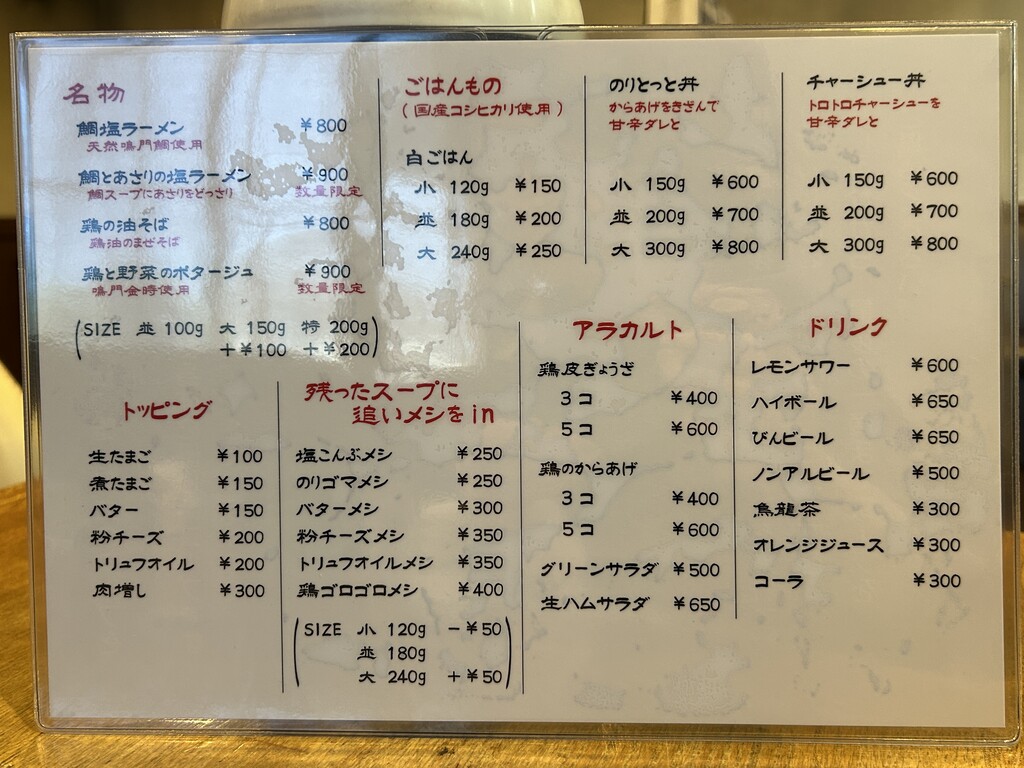 名物
鯛塩ラーメン ￥800
天然鳴門鯛使用
鯛とあさりの塩ラーメン ￥900
鯛スープにあさりをどっさり 数量限定
鶏の油そば ￥800
鶏油のまぜそば
鶏と野菜のポタージュ ￥900
鳴門金時使用 数量限定
(SIZE 並 100g 大 150g 特 200g
+￥100 +￥200)
ごはんもの
(国産コシヒカリ使用)
白ごはん
小 120g ￥150
並 180g ￥200
大 240g ￥250
のりとっと丼
からあげをきざんで
甘辛ダレと
小 150g ￥600
並 200g ￥700
大 300g ￥800
チャーシュー丼
トロトロチャーシューを
甘辛ダレと
小 150g ￥600
並 200g ￥700
大 300g ￥800
トッピング
生たまご ￥100
煮たまご ￥150
バター ￥150
粉チーズ ￥200
トリュフオイル ￥200
肉増し ￥300
残ったスープに
追いメシをin
塩こんぶメシ ￥250
のりゴマメシ ￥250
バターメシ ￥300
粉チーズメシ ￥350
トリュフオイルメシ ￥350
鶏ゴロゴロメシ ￥400
(SIZE 小 120g -￥50
並 180g
大 240g +￥50)
アラカルト
鶏皮ぎょうざ
3コ ￥400
5コ ￥600
鶏のからあげ
3コ ￥400
5コ ￥600
グリーンサラダ ￥500
生ハムサラダ ￥650
ドリンク
レモンサワー ￥600
ハイボール ￥650
びんビール ￥650
ノンアルビール ￥500
烏龍茶 ￥300
オレンジジュース ￥300
コーラ ￥300